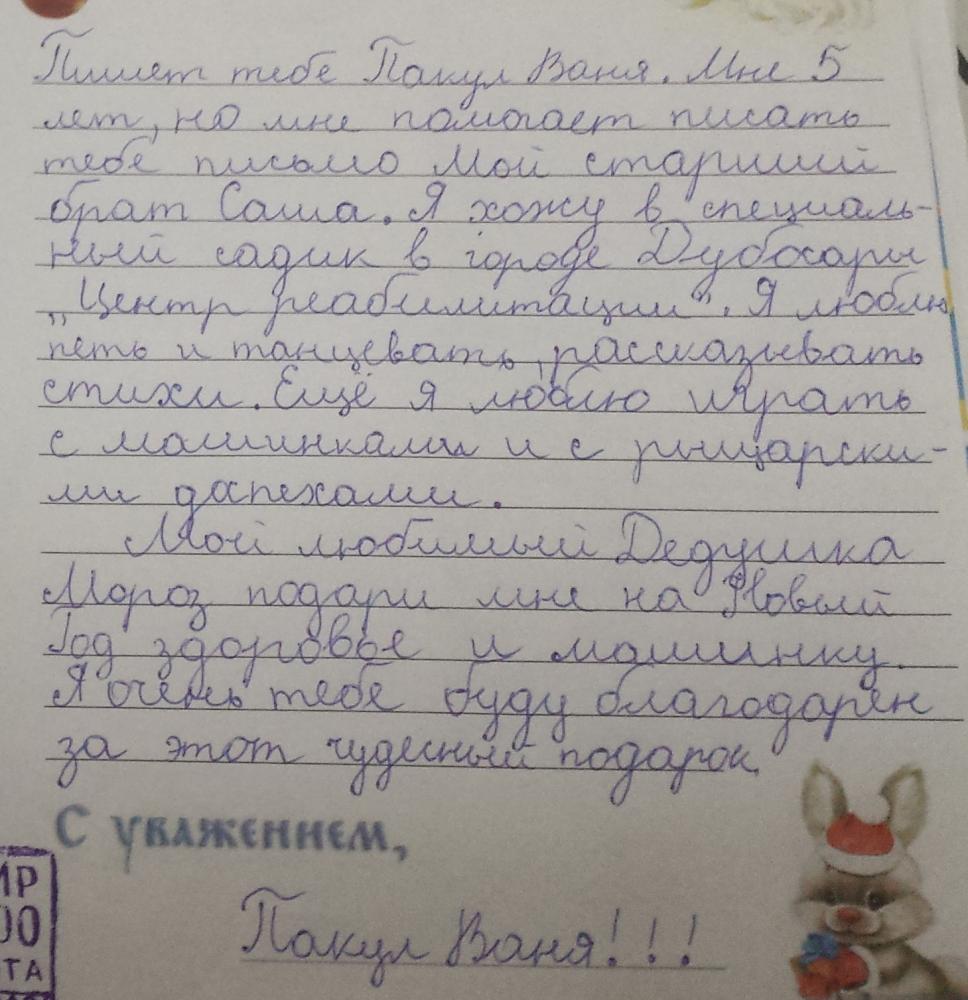 Пишет тебе Пакул Ваня. Мне 5
лет, но мне помогает писать
тебе письмо Мой старший
брат Саша. Я хожу в специаль-
ный садик в городе Дубосары
„Центр реабилитации". Я люблю
петь и танцевать, рассказывать
стихи. Ещё я люблю играть
с машинками и с рыцарски-
ми доспехами.
Мой любимый Дедушка
Мороз подари мне на Новый
Год здоровье и машинку.
Я очень тебе буду благодарен
за этот чудесный подарок.
С уважением,
Пакул Ваня!!!